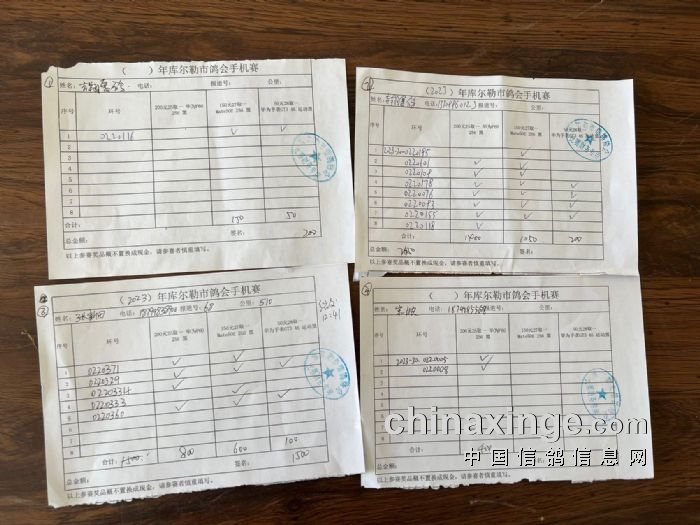 ①
（ ）年库尔勒市鸽会手机赛
姓名： 电话： 报道号： 公里：
序号 环号 200元25取一 华为P60 256 黑 150元27取一 Mate50E 256 黑 50元28取一 华为手表GT3 46 运动黑
1 0220116 ✓ ✓
2
3
4
5
6
7
8
合计： 150 50
总金额： 签名： 200
以上参赛奖品概不置换成现金，请参赛者慎重填写。
（2023）年库尔勒市鸽会手机赛
姓名： 电话： 报道号： 公里：
序号 环号 200元25取一 华为P60 256 黑 150元27取一 Mate50E 256 黑 50元28取一 华为手表GT3 46 运动黑
1 2023-30-0220195 ✓
2 0220101 ✓ ✓
3 0220108 ✓ ✓
4 0220178 ✓ ✓ ✓
5 0220076 ✓ ✓ ✓
6 0220093 ✓ ✓ ✓
7 0220155 ✓ ✓ ✓
8 0220118 ✓
合计： 1400 1050 200
总金额： 2650 签名：
以上参赛奖品概不置换成现金，请参赛者慎重填写。
③
（2023）年库尔勒市鸽会手机赛
姓名： 电话： 报道号：68 公里：510
12:41
序号 环号 200元25取一 华为P60 256 黑 150元27取一 Mate50E 256 黑 50元28取一 华为手表GT3 46 运动黑
1 0220371
2 0220329
3 0220334
4 0220333
5 0220360
6
7
8
合计：1500 800 600 100
总金额： 签名： 1500
以上参赛奖品概不置换成现金，请参赛者慎重填写。
（ ）年库尔勒市鸽会手机赛
姓名： 电话： 报道号： 公里：
序号 环号 200元25取一 华为P60 256 黑 150元27取一 Mate50E 256 黑 50元28取一 华为手表GT3 46 运动黑
1 2023-30-0220005 ✓
2 0220008 ✓
3
4
合计： 400
总金额： 签名：
以上参赛奖品概不置换成现金，请参赛者慎重填写。
chinaxinge.com
中国信鸽信息网